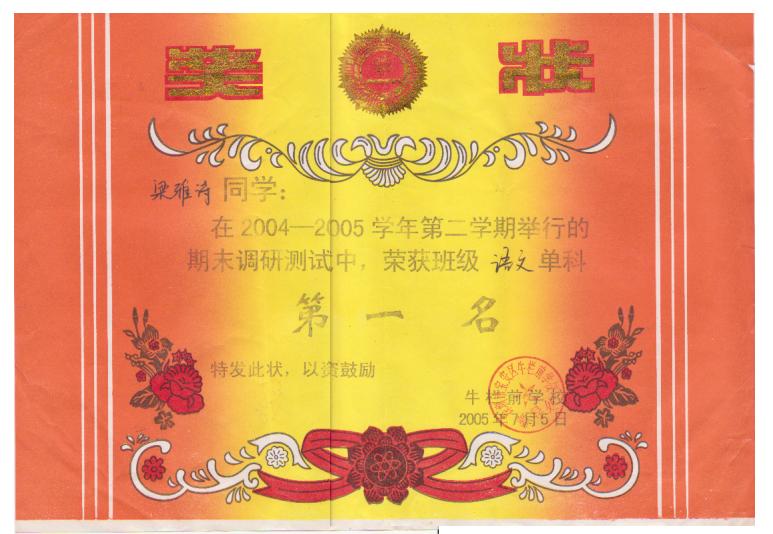 奖 状
梁雅诗 同学:
在 2004—2005 学年第二学期举行的
期末调研测试中，荣获班级 语文 单科
第 一 名
特发此状，以资鼓励
牛栏前学校
2005 年 7 月 5 日